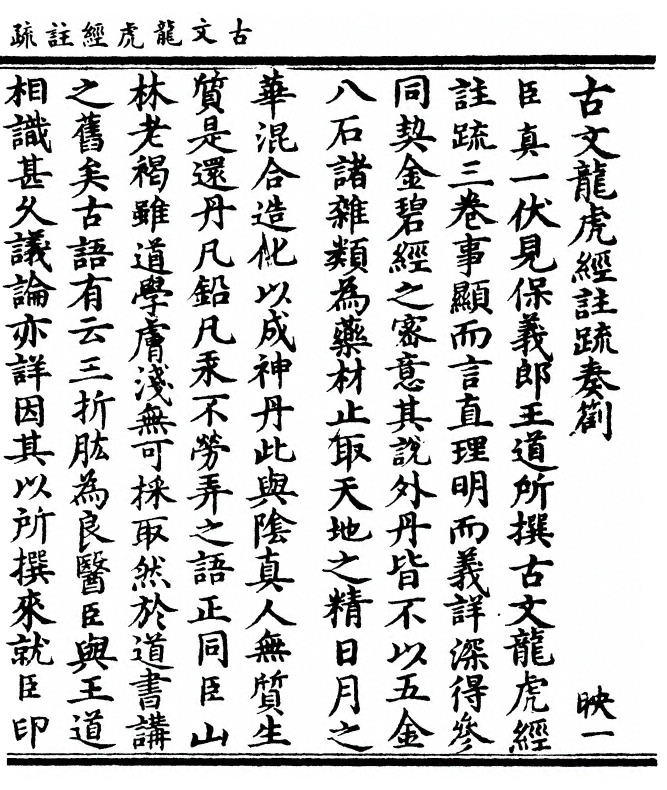 古文龍虎經註疏
古文龍虎經註疏奏劄 映一
臣真一伏見保義郎王道所撰古文龍虎經
註疏三卷事顯而言直理明而義詳深得參
同契金碧經之密意其說外丹皆不以五金
八石諸雜類為藥材止取天地之精日月之
華混合造化以成神丹此與陰真人無質生
質是還丹凡鉛凡汞不勞弄之語正同臣山
林老褐雖道學膚淺無可採取然於道書講
之舊矣古語有云三折肱為良醫臣與王道
相識甚久議論亦詳因其以所撰來就臣印